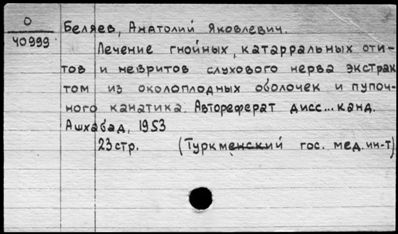 О
40999
Беляев, Анатолий Яковлевич.
Лечение гнойных, катарральных оти-
тов и невритов слухового нерва экстрак
том из околоплодных оболочек и пупоч-
ного канатика. Автореферат дисс... канд.
Ашхабад, 1953
23стр. (Туркменский гос. мед. ин-т)